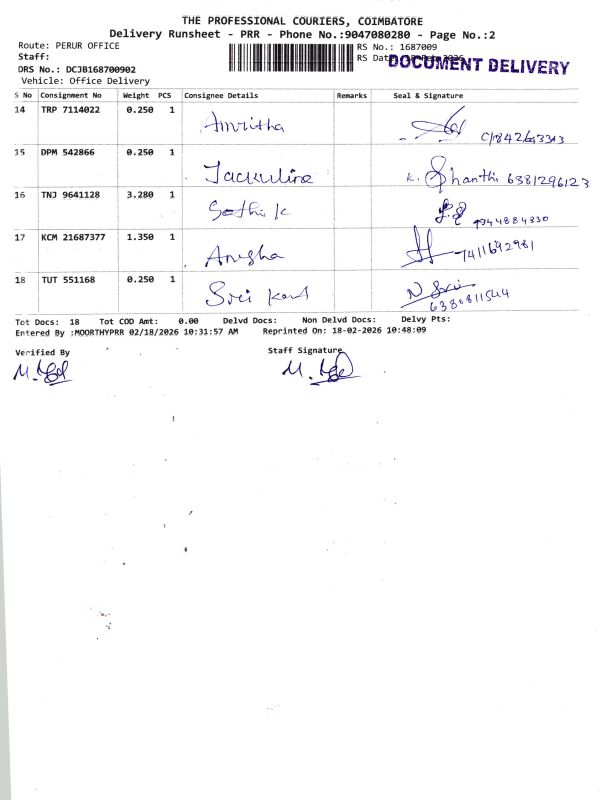 THE PROFESSIONAL COURIERS, COIMBATORE
Delivery Runsheet - PRR - Phone No.:9047080280 - Page No.:2
Route: PERUR OFFICE RS No.: 1687009
Staff: RS Dat
DOCUMENT DELIVERY
DRS No.: DCJB168700902
Vehicle: Office Delivery
S No Consignment No Weight PCS Consignee Details Remarks Seal & Signature
14 TRP 7114022 0.250 1 Amritha
15 DPM 542866 0.250 1 Jackuline K. Shanthi 6381296123
16 TNJ 9641128 3.280 1 Sathik
17 KCM 21687377 1.350 1 Anusha 7411692981
18 TUT 551168 0.250 1 Sri 6380811544
Tot Docs: 18 Tot COD Amt: 0.00 Delvd Docs: Non Delvd Docs: Delvy Pts:
Entered By :MOORTHYPRR 02/18/2026 10:31:57 AM Reprinted On: 18-02-2026 10:48:09
Verified By Staff Signature